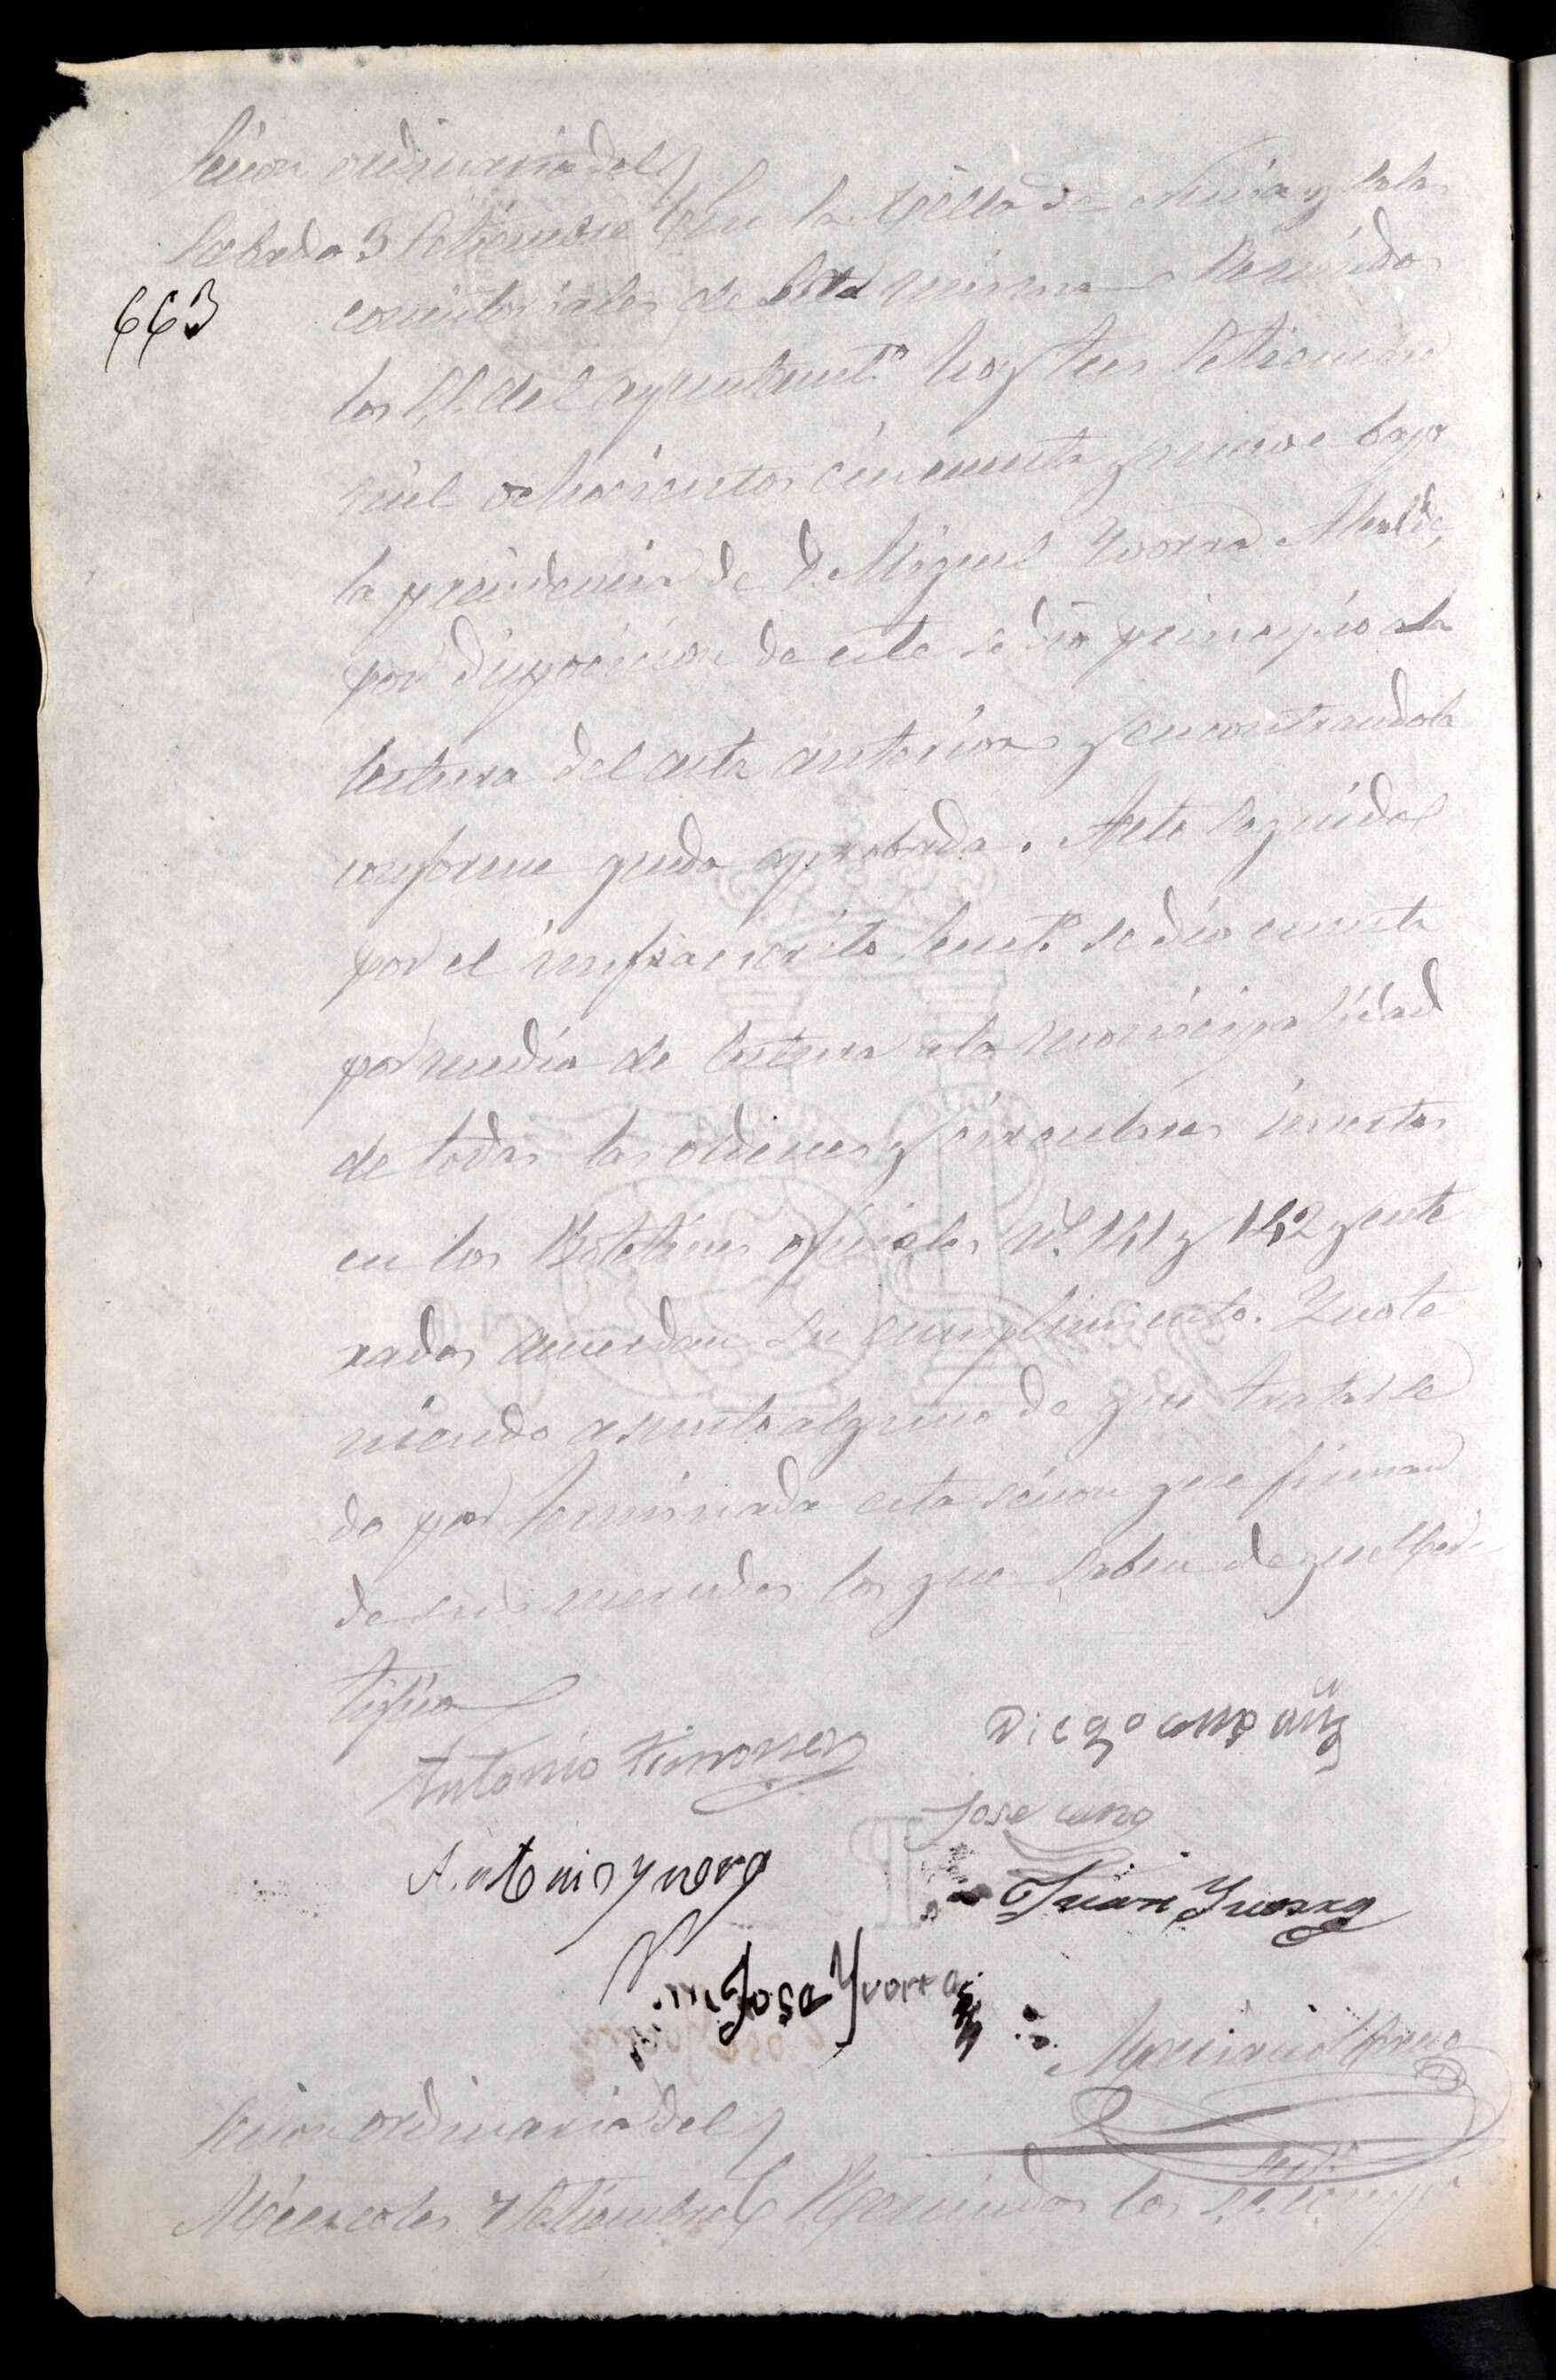 Sesion ordinaria del
Sabado 3 Setiembre En la Villa de y salas
663
consistoriales de esta misma Reunidos
los S.S. del ayuntamt.º hoy tres Setiembre
mil ochocientos cincuenta y nueve bajo
la presidencia de D. Miguel Yvorra Alcalde,
por disposicion de este se dio principio a la
lectura del acta anterior y encontrandola
conforme queda aprobada. Acto seguido
por el infraescrito Secret.º se dio cuenta
por medio de lectura a la municipalidad
de todas las ordenes y circulares insertas
en los Boletines oficiales nº. 141 y 142 y ente
rados acuerdan su cumplimiento. Y no te
niendo asunto alguno de que tratar se
da por terminada esta sesion que firman
de sus mercedes los que saben de que
tifico
Antonio
Diego
Jose cano
Antonio yvorra
Juan Yvorra
Jose Yvorra
Sesion ordinaria del
Miercoles 7 Setiembre Reunidos los